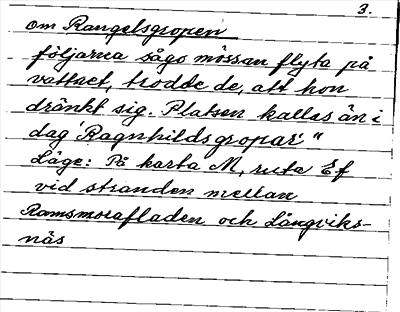 3.
om Rangelsgropen
följarna sågo mössan flyta på
vattnet, trodde de, att hon
dränkt sig. Platsen kallas än i
dag 'Ragnhilds gropar' "
Läge: På karta M, ruta Ef
vid stranden mellan
Ramsmosafladen och Långviks-
näs